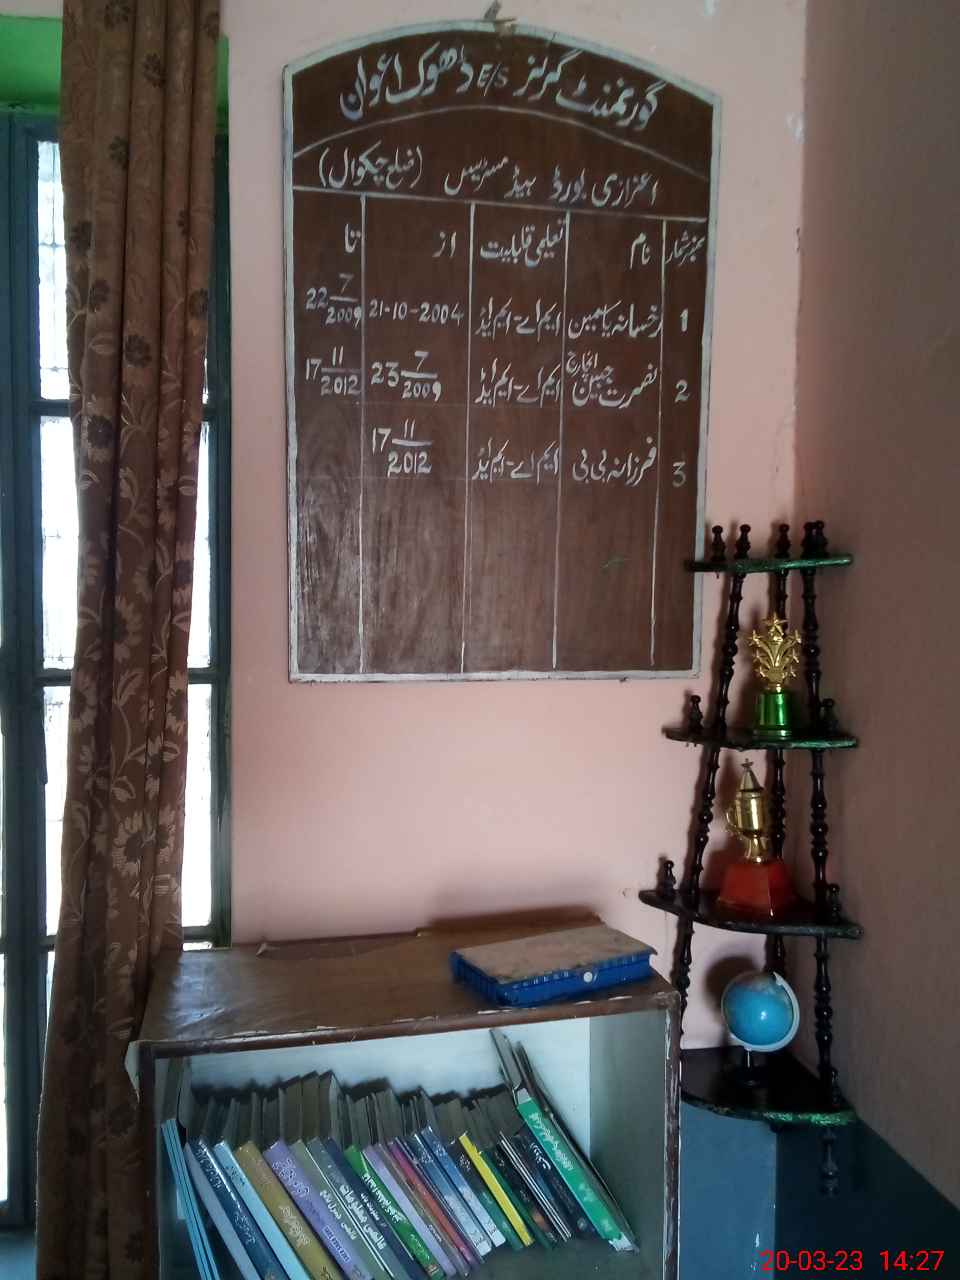 گورنمنٹ گرلز E/S ڈھوک اعوان
اعزازی بورڈ ہیڈ مسٹریس (ضلع چکوال)
نمبر شمار نام تعلیمی قابلیت از تا
1 رخسانہ یاسمین ایم اے-ایم ایڈ 21-10-2004 22 7/2009
2 نصرت جبین انچارج ایم اے-ایم ایڈ 23 7/2009 17 11/2012
3 فرزانہ بی بی ایم اے-ایم ایڈ 17 11/2012
20-03-23 14:27